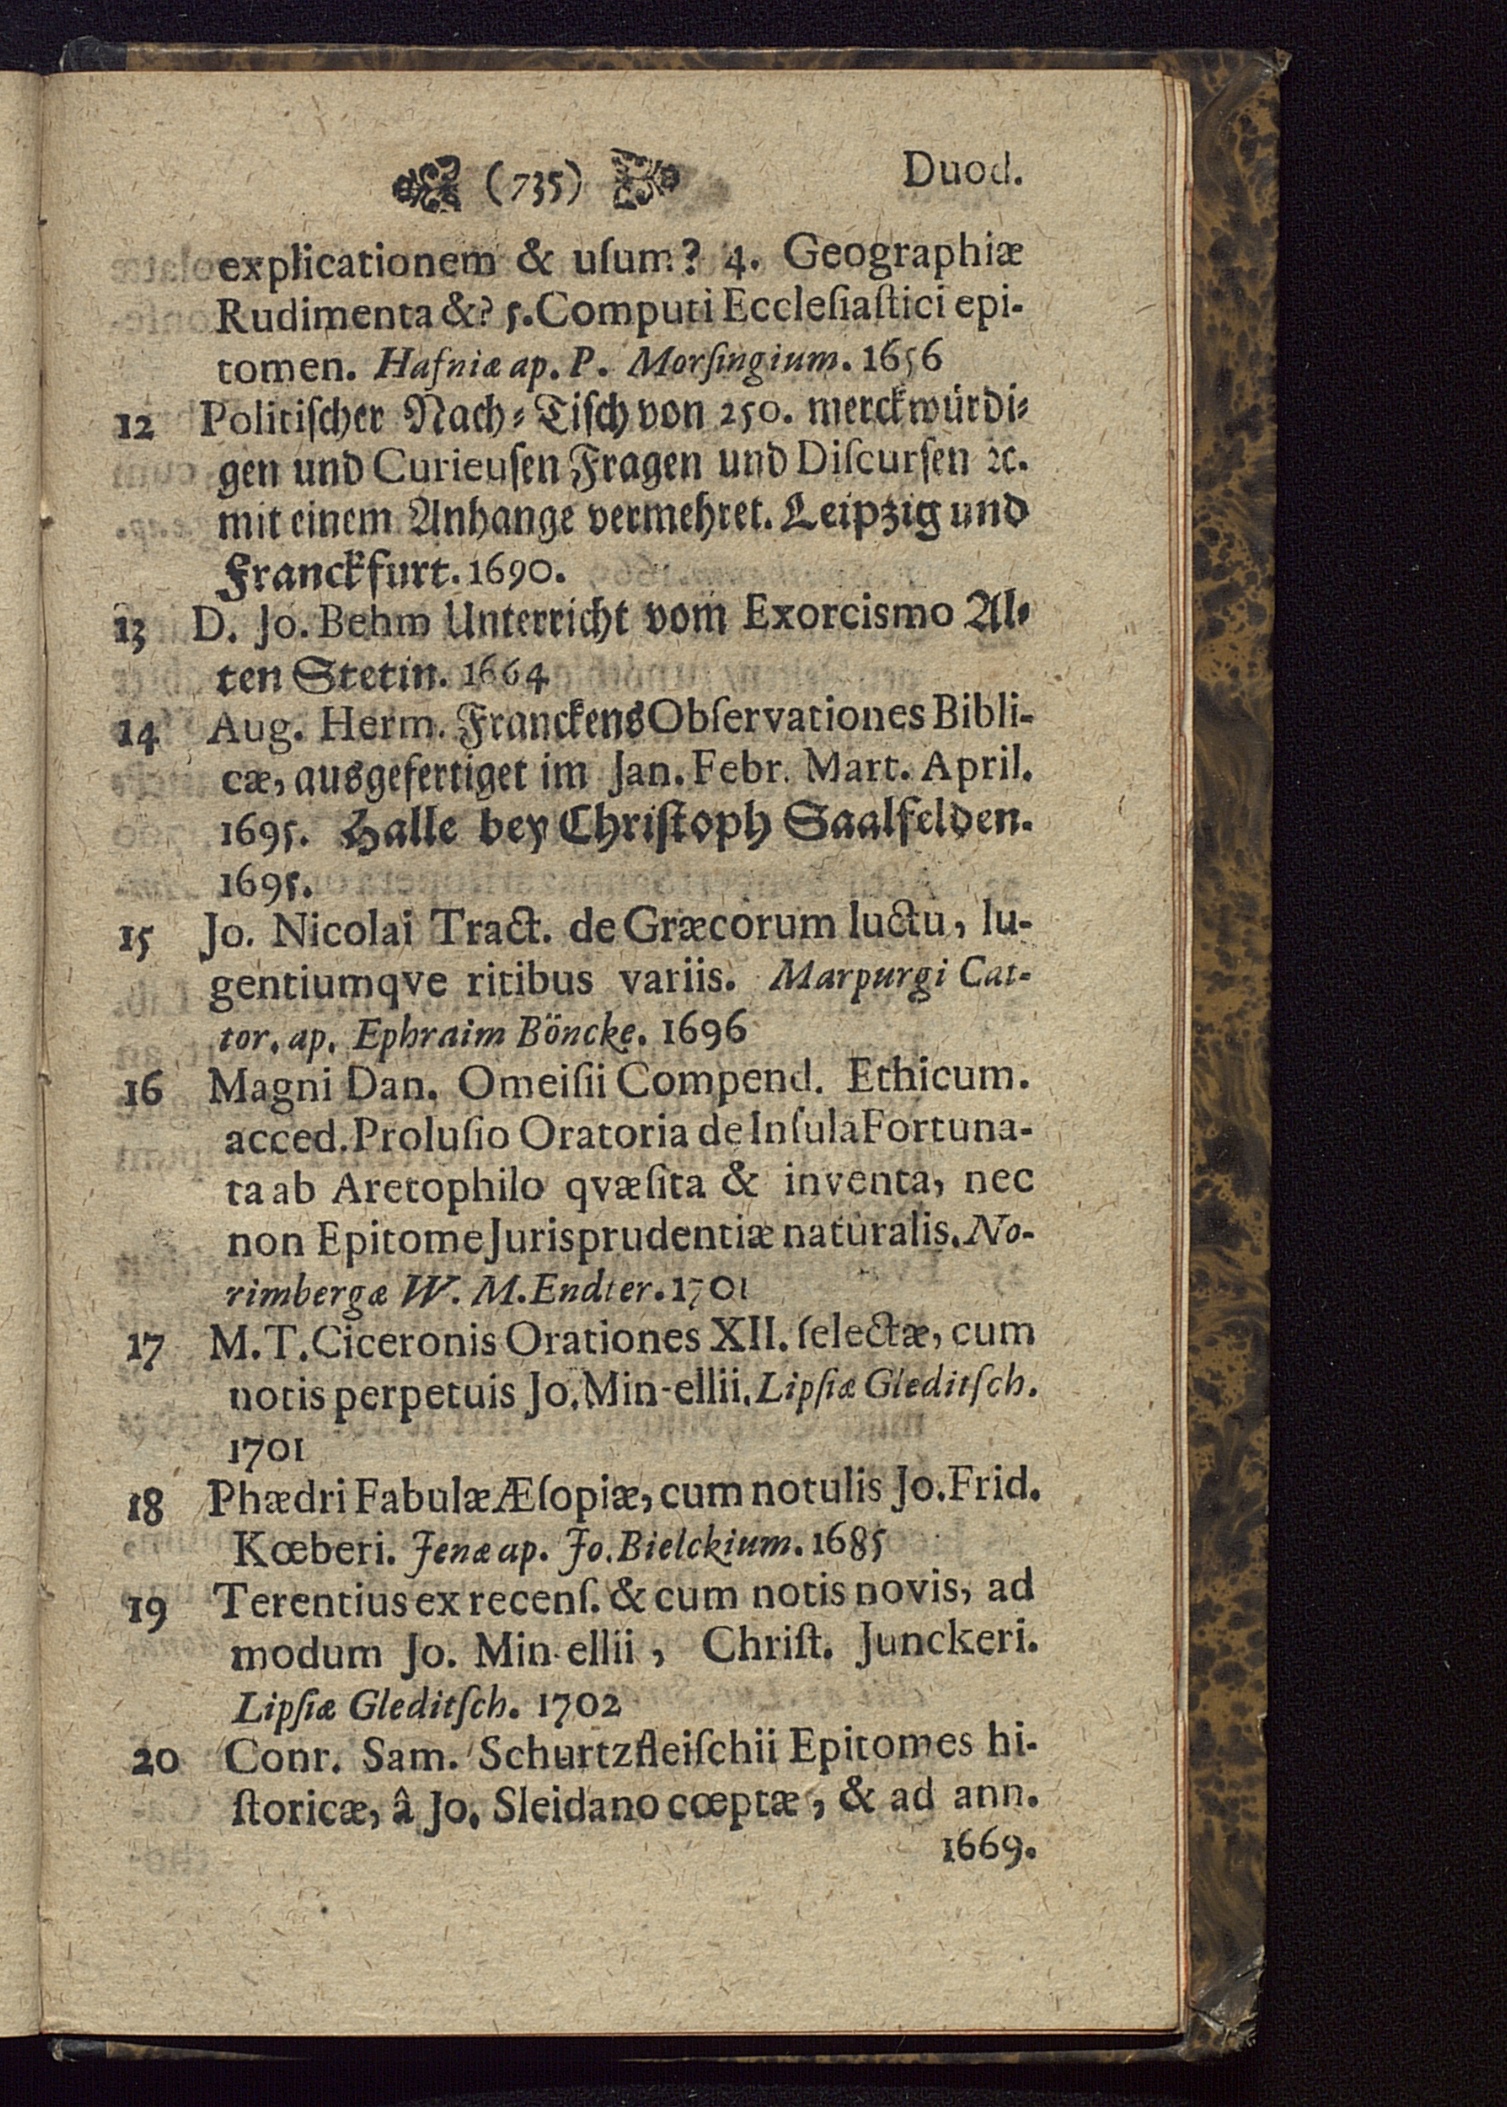 (735) Duod.
explicationem & uſum? 4. Geographiæ
Rudimenta &? 5. Computi Eccleſiaſtici epi-
tomen. Hafniæ ap. P. Morſingium. 1656
12 Politiſcher Nach-Tiſch von 250. merckwürdi-
gen und Curieuſen Fragen und Diſcurſen ꝛc.
mit einem Anhange vermehret. Leipzig und
Franckfurt. 1690.
13 D. Jo. Behm Unterricht vom Exorcismo Al-
ten Stetin. 1664
14 Aug. Herm. Franckens Obſervationes Bibli-
cæ, ausgefertiget im Jan. Febr. Mart. April.
1695. Halle bey Chriſtoph Saalfelden.
1695.
15 Jo. Nicolai Tract. de Græcorum luctu, lu-
gentiumqve ritibus variis. Marpurgi Cat-
tor. ap. Ephraim Böncke. 1696
16 Magni Dan. Omeiſii Compend. Ethicum.
acced. Proluſio Oratoria de Inſula Fortuna-
ta ab Aretophilo qvæſita & inventa, nec
non Epitome Jurisprudentiæ naturalis. No-
rimbergæ W. M. Endter. 1701
17 M. T. Ciceronis Orationes XII. ſelectæ, cum
notis perpetuis Jo. Min-ellii. Lipſiæ Gleditſch.
1701
18 Phædri Fabulæ Æſopiæ, cum notulis Jo. Frid.
Kœberi. Jenæ ap. Jo. Bielckium. 1685
19 Terentius ex recenſ. & cum notis novis, ad
modum Jo. Min-ellii, Chriſt. Junckeri.
Lipſiæ Gleditſch. 1702
20 Conr. Sam. Schurtzfleiſchii Epitomes hi-
ſtoricæ, â Jo. Sleidano cœptæ, & ad ann.
1669.